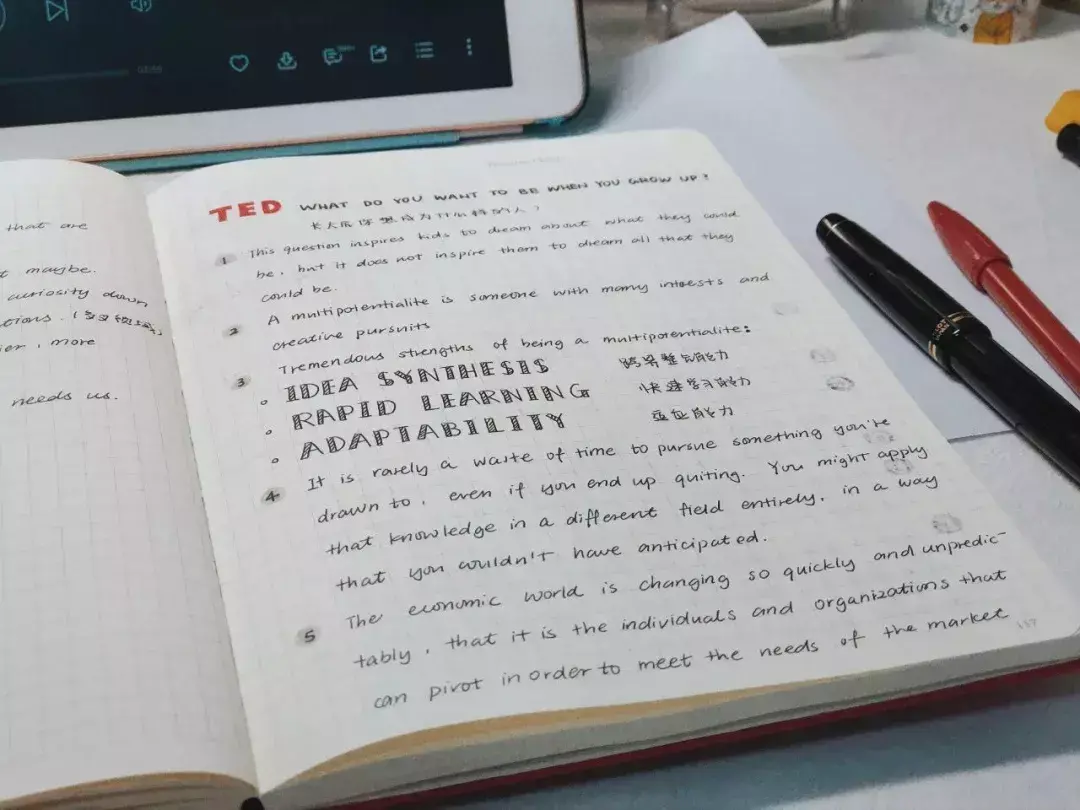 that are
maybe.
curiosity down
more
needs us.
TED WHAT DO YOU WANT TO BE WHEN YOU GROW UP?
长大后你想成为什么样的人?
1 This question inspires kids to dream about what they could
be, but it does not inspire them to dream all that they
could be.
2 A multipotentialite is someone with many intersts and
creative pursuits
3 Tremendous strengths of being a multipotentialite:
IDEA SYNTHESIS 跨界整合能力
RAPID LEARNING 快速学习能力
ADAPTABILITY 适应能力
4 It is rarely a waste of time to pursue something you're
drawn to, even if you end up quiting. You might apply
that knowledge in a different field entirely, in a way
that you wouldn't have anticipated.
5 The economic world is changing so quickly and unpredic-
tably, that it is the individuals and organizations that
can pivot in order to meet the needs of the market
157